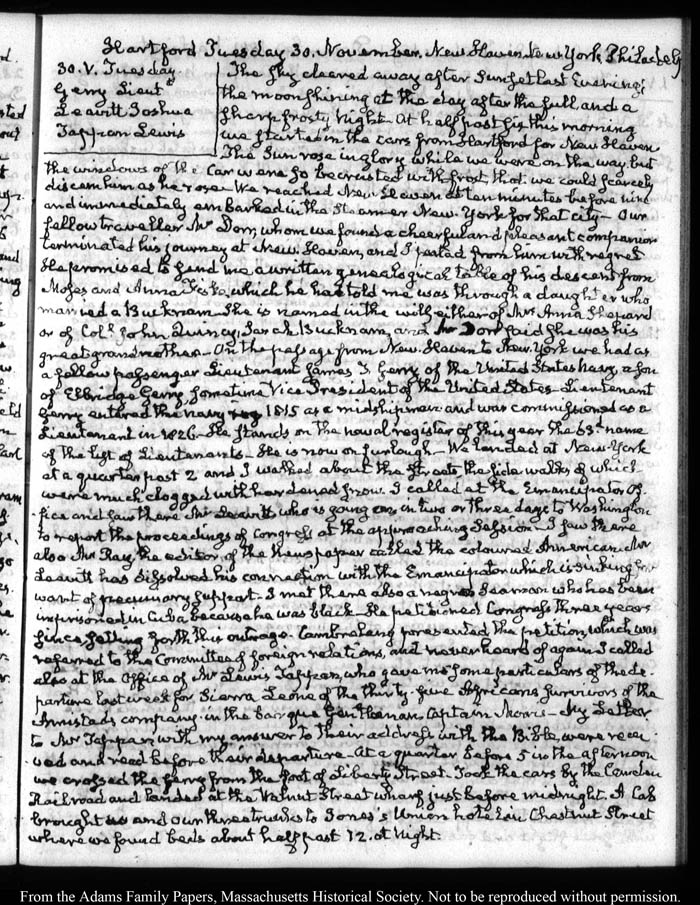 Hartford Tuesday 30. November. New Haven. New York. Philadely
30. V. Tuesday.
Gerry Lieut
Leavitt Joshua
Tappan Lewis
The sky cleared away after Sunset last Evening;
the moon shining at the day after the full, and a
sharp frosty Night. At half past six this morning
we started in the cars from Hartford for New Haven
The Sun rose in glory while we were on the way, but
the windows of the Car were so becrusted with frost, that we could scarcely
discern him as he rose. We reached New Haven at ten minutes before nine
and immediately embarked in the Steamer New-York for that city— Our
fellow traveller Mr Dorr, whom we found a cheerful and pleasant companion
terminated his journey at New-Haven, and I parted from him with regret
He promised to send me a written genealogical table of his descent from
Moses and Anna Fiske, which he has told me was through a daughter who
married a Bucknam. She is named in the will either of Mrs Anna Shepard
or of Coll John Quincy, Sarah Bucknam, and Mr Dorr said she was his
great grandmother— On the passage from New-Haven to New-York we had as
a fellow passenger Lieutenant James T. Gerry of the United States Navy, a son
of Elbridge Gerry, sometime Vice President of the United States— Lieutenant
Gerry entered the navy 1815 as a midshipman and was commissioned as a
Lieutenant in 1826— He stands on the naval register of this year the 63d name
of the list of Lieutenants— He is now on furlough— We landed at New-York
at a quarter past 2 and I walked about the streets, the side walks of which
were much clogged with hardened snow. I called at the Emancipator Of-
fice and saw there Mr Leavitt who is going on in two or three days to Washington
to report the proceedings of Congress at the approaching Session— I saw there
also Mr Ray, the editor of the Newspaper called the coloured American. Mr
Leavitt has dissolved his connection with the Emancipator which is sinking for
want of pecuniary support— I met there also a negro Seaman who has been
imprisoned in Cuba because he was black— He petitioned Congress three years
since, setting forth this outrage. Cambreleng presented the petition, which was
referred to the Committee of foreign relations, and never heard of again. I called
also at the Office of Mr Lewis Tappan, who gave me some particulars of the de-
parture last week for Sierra Leone of the thirty-five Africans Survivors of the
Amistad's company. in the barque Gentleman, Captain Morris— My Letter
to Mr Tappan with my answer to their address with the Bible, were recei-
ved and read before their departure— At a quarter before 5 in the afternoon
we crossed the ferry from the foot of Liberty Street. Took the cars by the Camden
Railroad and landed at the Walnut Street wharf just before midnight. A Cab
brought us and our three trunks to Jones's Union hotel in Chestnut Street
where we found beds about half past 12. at Night.
From the Adams Family Papers, Massachusetts Historical Society. Not to be reproduced without permission.